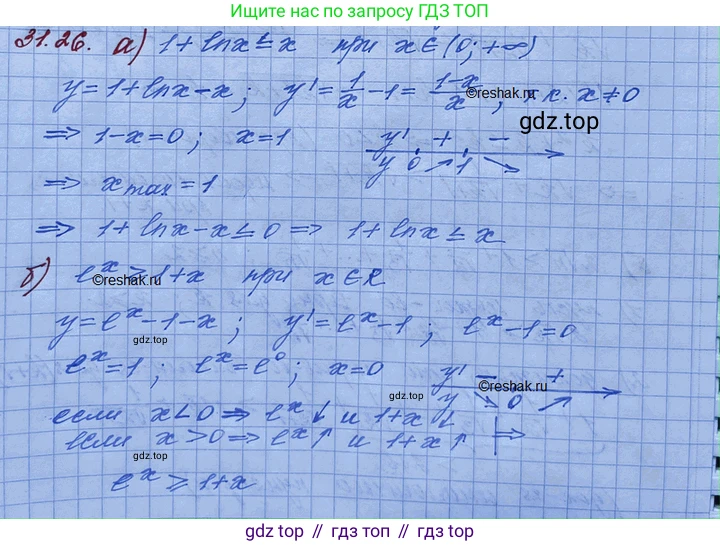 Ищите нас по запросу ГДЗ ТОП
31.26. а) 1 + ln x ≤ x при x ∈ (0; +∞)
y = 1 + ln x − x; y' = 1/x − 1 = (1−x)/x, т.к. x ≠ 0
©reshak.ru
gdz.top
⇒ 1−x=0; x=1 y' + −
y 0 ↗ 1 ↘
⇒ x max = 1
⇒ 1 + ln x − x ≤ 0 ⇒ 1 + ln x ≤ x
б) e^x ≥ 1+x при x ∈ R
©reshak.ru
y = e^x − 1 − x; y' = e^x − 1; e^x − 1 = 0
gdz.top
e^x = 1; e^x = e^0; x = 0 y' − +
y ↘ 0 ↗
©reshak.ru
gdz.top
если x < 0 ⇒ e^x ↓ и 1+x ↓
если x > 0 ⇒ e^x ↑ и 1+x ↑ | ⇒
gdz.top
e^x ≥ 1+x
gdz top // гдз топ // gdz.top